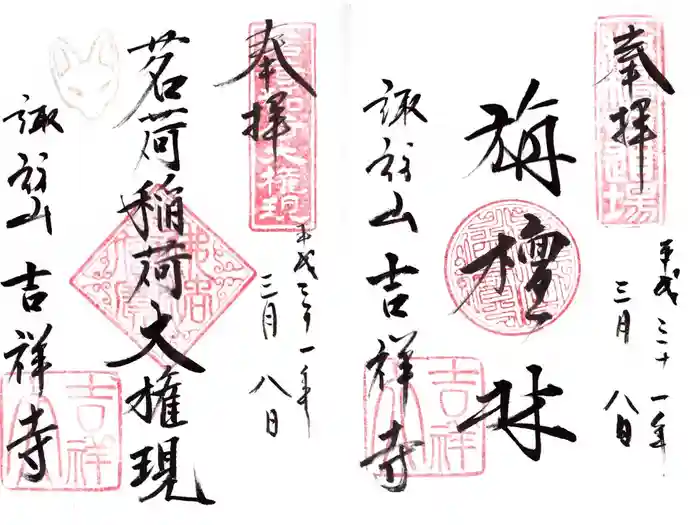 奉拝
旃檀林
平成三十一年
三月八日
諏訪山吉祥寺
吉祥
奉拝
大権現
茗荷稲荷大権現
平成三十一年
三月八日
諏訪山吉祥寺
吉祥